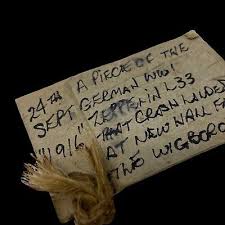 24TH A PIECE OF THE
SEPT GERMAN WW1
"1916" ZEPPELIN L33
THAT CRASH LANDED
AT NEW HALL
THE WIGBORO